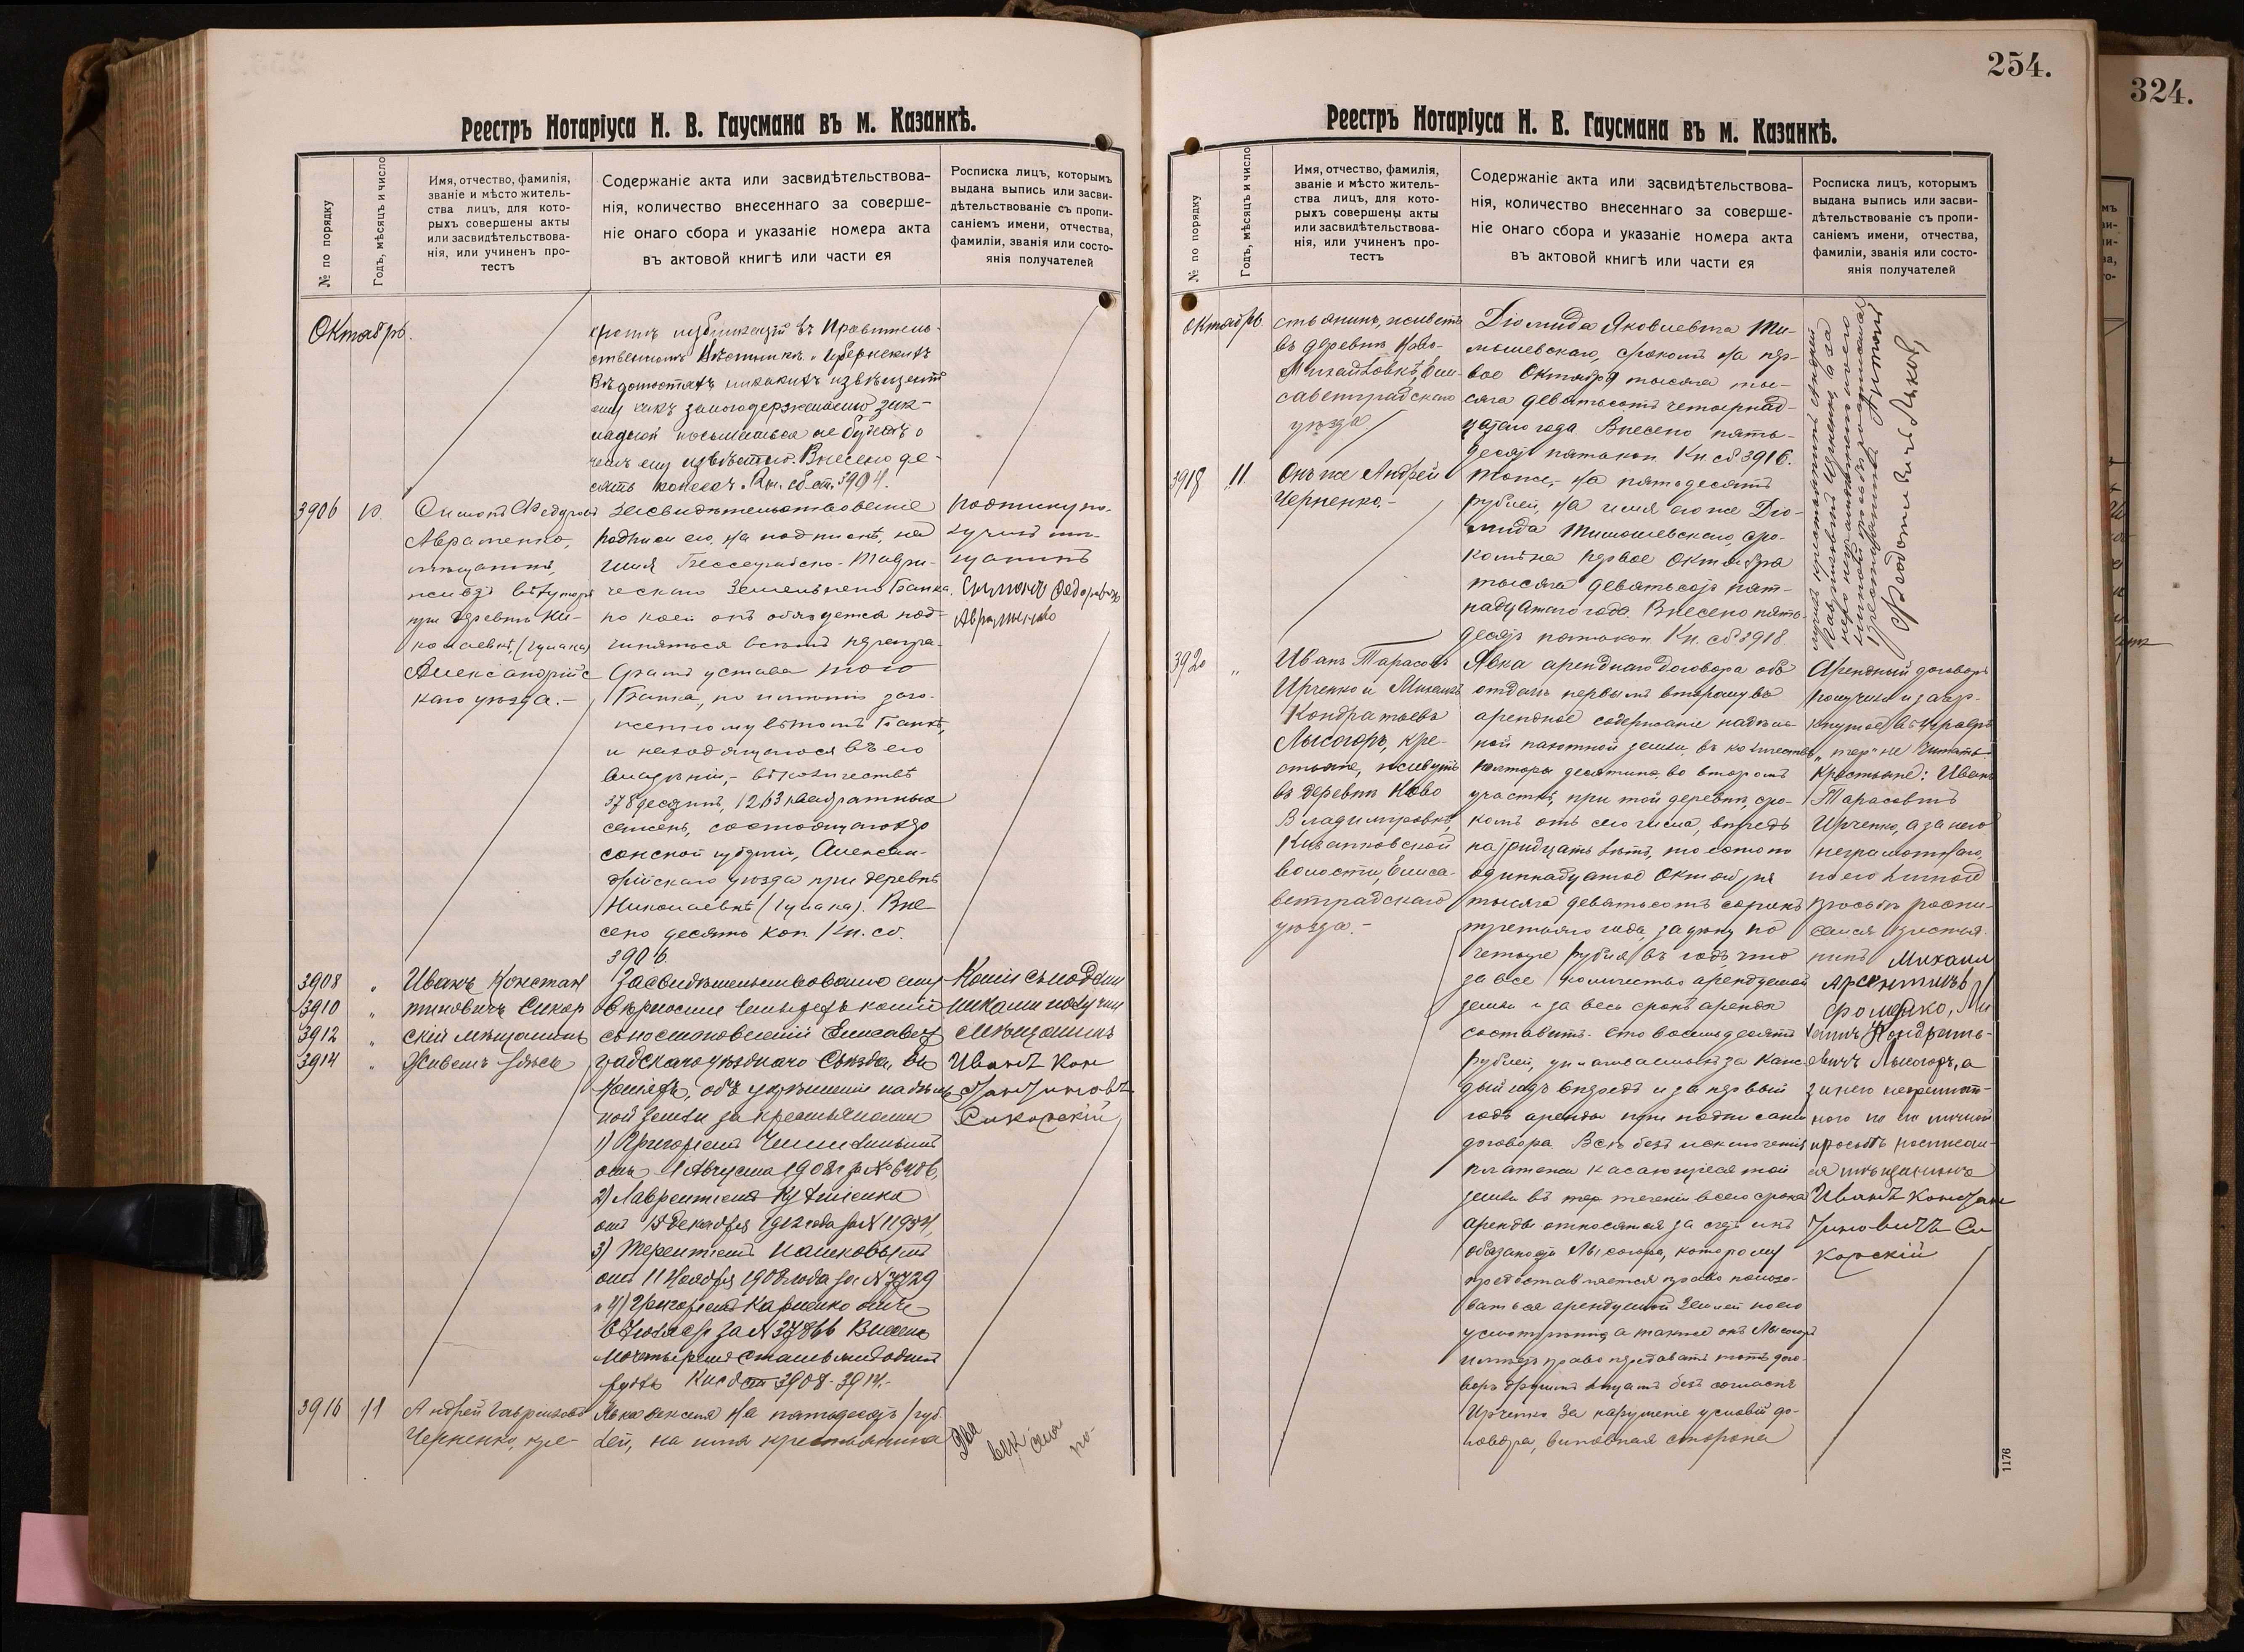 254.
324.
Реестръ Нотаріуса Н. В. Гаусмана въ м. Казанкѣ.
№ по порядку
Годъ, мѣсяцъ и число
Имя, отчество, фамилія,
званіе и мѣсто житель-
ства лицъ, для кото-
рыхъ совершены акты
или засвидѣтельствова-
нія, или учиненъ про-
тестъ
Содержаніе акта или засвидѣтельствова-
нія, количество внесеннаго за соверше-
ніе онаго сбора и указаніе номера акта
въ актовой книгѣ или части ея
Росписка лицъ, которымъ
выдана выпись или засви-
дѣтельствованіе съ пропи-
саніемъ имени, отчества,
фамиліи, званія или состо-
янія получателей
Октябрь.
въ Правитель-
ственномъ Вѣстникѣ и Губернскихъ
Вѣдомостяхъ никакихъ извѣщеній
ему какъ залогодержателю зак-
ладной посылаться не будетъ о
чемъ ему извѣстно. Внесено де-
сять копеекъ. Кн. сб. ст. 3904.
3906
10.
Симонъ Федоровъ
Авраменко,
мѣщанинъ,
живетъ
при деревнѣ Ни-
колаевкѣ,
Александрійс-
каго уѣзда.-
Засвидѣтельствованіе
подписи его, на подпискѣ, на
имя Бессарабско-Таври-
ческаго Земельнаго Банка,
по коей онъ обязуется под-
чиняться всѣмъ
устава того
Банка, по имѣнію зало-
женному въ томъ Банкѣ,
и находящагося въ его
владѣніи,- въ количествѣ
378 десятинъ, 1263 квадратныхъ
сажень, состоящаго Хер-
сонской губерніи, Алексан-
дрійскаго уѣзда при деревнѣ
Николаевкѣ Вне-
сено десять коп. Кн. сб.
3906.
Подписку по-
лучилъ мѣ-
щанинъ
Симонъ Федоровичъ
Авраменко
3908
3910
3912
3914
Иванъ Констан
тиновичъ Сикор
скій мѣщанинъ
Живетъ здѣсь
Засвидѣтельствовано ему
вѣрность четырехъ копій
съ постановленій Елисавет
градскаго уѣзднаго Съѣзда, въ
копіяхъ, объ укрѣпленіи надѣль
ной земли за крестьянами
1) Григоріемъ
отъ 1 Августа 1908 г за № 6486,
2) Лаврентіемъ
отъ 15 Декабря 1912 года за № 11934,
3) Терентіемъ
отъ 11 Ноября 1908 года за № 3729
и 4) Григоріемъ Карпенко отъ
за № 37866 Внесено
Кн сб ст 3908-3914.-
Копіи съ подлин
никами получилъ
Мѣщанинъ
Иванъ Кон
стантиновъ
Сикорскій
3916
11
Андрей Гавриловъ
Черненко, кре-
Явка векселя на пятьдесятъ руб-
лей, на имя крестьянина
Два
век
селя
по-
Реестръ Нотаріуса Н. В. Гаусмана въ м. Казанкѣ.
№ по порядку
Годъ, мѣсяцъ и число
Имя, отчество, фамилія,
званіе и мѣсто житель-
ства лицъ, для кото-
рыхъ совершены акты
или засвидѣтельствова-
нія, или учиненъ про-
тестъ
Содержаніе акта или засвидѣтельствова-
нія, количество внесеннаго за соверше-
ніе онаго сбора и указаніе номера акта
въ актовой книгѣ или части ея
Росписка лицъ, которымъ
выдана выпись или засви-
дѣтельствованіе съ пропи-
саніемъ имени, отчества,
фамиліи, званія или состо-
янія получателей
Октябрь
стьянинъ, живетъ
въ деревнѣ Ново-
Ели-
саветградскаго
уѣзда
Діомида Яковлевича Ти-
мошевскаго, срокомъ на пер-
вое Октября тысяча ты-
сяча девятьсотъ четырнад-
цатаго года. Внесено пять-
десятъ пять коп Кн. сб 3916.
лучилъ крестьянинъ Андрей
Гавриловъ Черненко, а за
него неграмотнаго по его
личной просьбѣ росписался
крестьянинъ Антонъ
Феодотовичъ Лыковъ
3918
11.
Онъ же Андрей
Черненко.-
Тоже,- на пятьдесятъ
рублей, на имя его же Діо-
мида Тимошевскаго, сро-
комъ на первое Октября
тысяча девятьсотъ пят-
надцатаго года. Внесено пять-
десятъ пять коп Кн. сб 3918.
3920
"
Иванъ Тарасовъ
Ирченко и Михаилъ
Кондратьевъ
Лысогоръ, кре-
стьяне, живутъ
въ деревнѣ Ново
Владимировкѣ,
Казанковской
волости, Елиса-
ветградскаго
уѣзда.-
Явка аренднаго договора объ
отдачѣ первымъ второму въ
арендное содержаніе надѣль-
ной пахотной земли, въ количествѣ
полторы десятины, во второмъ
участкѣ, при той деревнѣ, сро-
комъ отъ сего числа, впредь
на тридцать лѣтъ, то есть по
одиннадцатое Октября
тысяча девятьсотъ сорокъ
третьяго года, за цѣну по
четыре рубля въ годъ, что
за все количество арендуемой
земли и за весь срокъ аренды
составитъ. сто восемьдесятъ
рублей, уплачиваемыхъ за каж-
дый годъ впередъ и за первый
годъ аренды при подписаніи
договора. Всѣ безъ исключенія
платежи касающіеся той
земли въ тер теченіи всего срока
аренды относятся за счетъ и къ
обязаности Лысогора, которому
предоставляется право пользо-
ваться арендуемой землей по его
усмотрѣнію, а также онъ Лысогоръ
имѣетъ право передавать тотъ дого-
воръ другимъ лицамъ безъ согласія
Ирченко. За нарушеніе условій до-
говора, виновная сторона
Арендный договоръ
получили и зачер-
кнутое въ 4 графѣ
„тер" не читать.
Крестьяне: Иванъ
Тарасовъ
Ирченко, а за него
неграмотнаго,
по его личной
просьбѣ роспи-
сался крестья-
нинъ Михаил
Арсентичъ
Ми
хаилъ Кондрать-
евичъ Лысогоръ, а
за него неграмот-
ного по его личной
просьбѣ росписал-
ся мѣщанинъ
Иванъ Констан
тиновичъ Си
корскій
1176